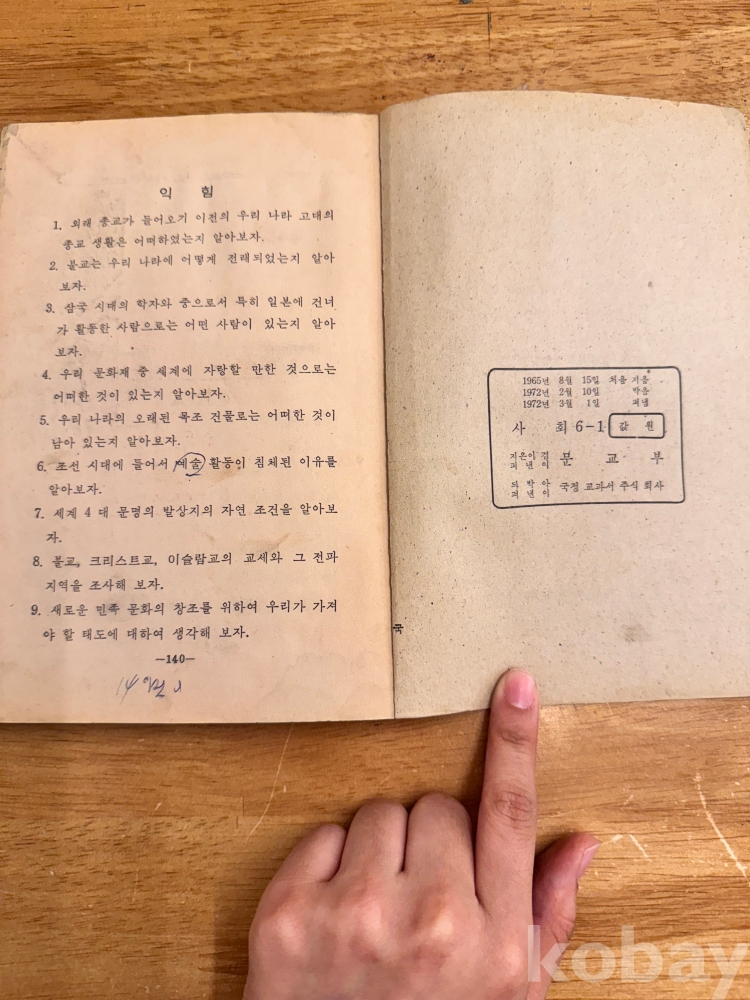 익 힘
1. 외래 종교가 들어오기 이전의 우리 나라 고대의
종교 생활은 어떠하였는지 알아보자.
2. 불교는 우리 나라에 어떻게 전래되었는지 알아
보자.
3. 삼국 시대의 학자와 중으로서 특히 일본에 건너
가 활동한 사람으로는 어떤 사람이 있는지 알아
보자.
4. 우리 문화재 중 세계에 자랑할 만한 것으로는
어떠한 것이 있는지 알아보자.
5. 우리 나라의 오래된 목조 건물로는 어떠한 것이
남아 있는지 알아보자.
6. 조선 시대에 들어서 예술 활동이 침체된 이유를
알아보자.
7. 세계 4 대 문명의 발상지의 자연 조건을 알아보
자.
8. 불교, 크리스트교, 이슬람교의 교세와 그 전파
지역을 조사해 보자.
9. 새로운 민족 문화의 창조를 위하여 우리가 가져
야 할 태도에 대하여 생각해 보자.
—140—
1965년 8월 15일 처음 지음
1972년 2월 10일 박음
1972년 3월 1일 펴냄
사 회 6-1 값 원
지은이 겸
펴낸이 문 교 부
의 박 아
펴 낸 이 국정 교과서 주식 회사
국
kobay